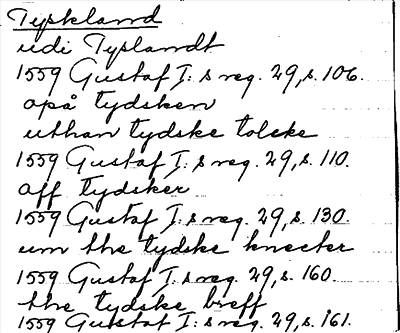 Tyskland
udi Tyslandt
1559 Gustaf I: s reg. 29, s. 106.
opå tydsken
uthan tydske tolcke
1559 Gustaf I: s reg. 29, s. 110.
aff tydsker
1559 Gustaf I: s reg. 29, s. 130.
um the tydske knecter
1559 Gustaf I: s reg. 29, s. 160.
the tydske breff
1559 Gustaf I: s reg. 29, s. 161.